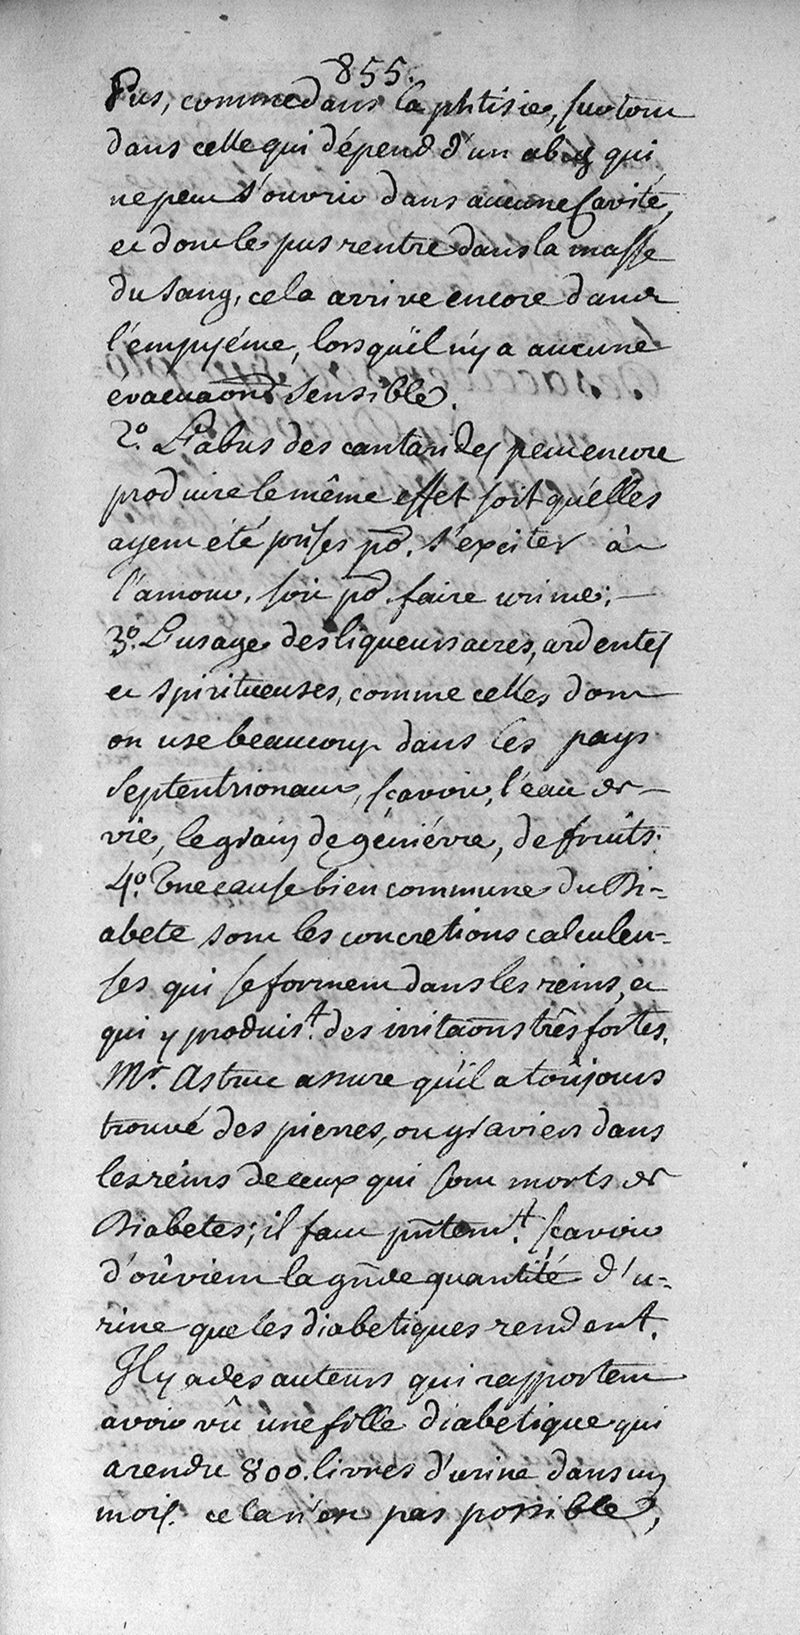 855.
Pus, comme dans la phtisie, surtout
dans celle qui dépend d'un abcès qui
ne peut s'ouvrir dans aucune Cavité,
et dont le pus rentre dans la masse
du sang, cela arrive encore dans
l'empyéme, lorsqu'il n'y a aucune
évacuaõn sensible.
2º. L'abus des cantarides peut encore
produire le même effet soit qu'elles
ayent été prises pr. s'exciter à
l'amour, soit pr. faire uriner;
3º. L'usage des liqueurs acres, ardentes
et spiritueuses, comme celles dont
on use beaucoup dans les pays
septentrionaux, sçavoir, l'eau de
vie, le grain de génièvre, de fruits.
4º. Une cause bien commune du Di-
abete sont les concretions calculeu-
ses qui se forment dans les reins, et
qui y produist. des irritaõns très fortes.
Mr. Astruc assure qu'il a toûjours
trouvé des pierres, ou graviers dans
les reins de ceux qui sont morts de
Diabetes; il faut pñtemt. sçavoir
d'oû vient la gñde quantité d'u-
rine que les diabetiques rendent.
Il y a des auteurs qui rapportent
avoir vû une fille diabetique qui
a rendu 800. livres d'urine dans un
mois. cela n'est pas possible,